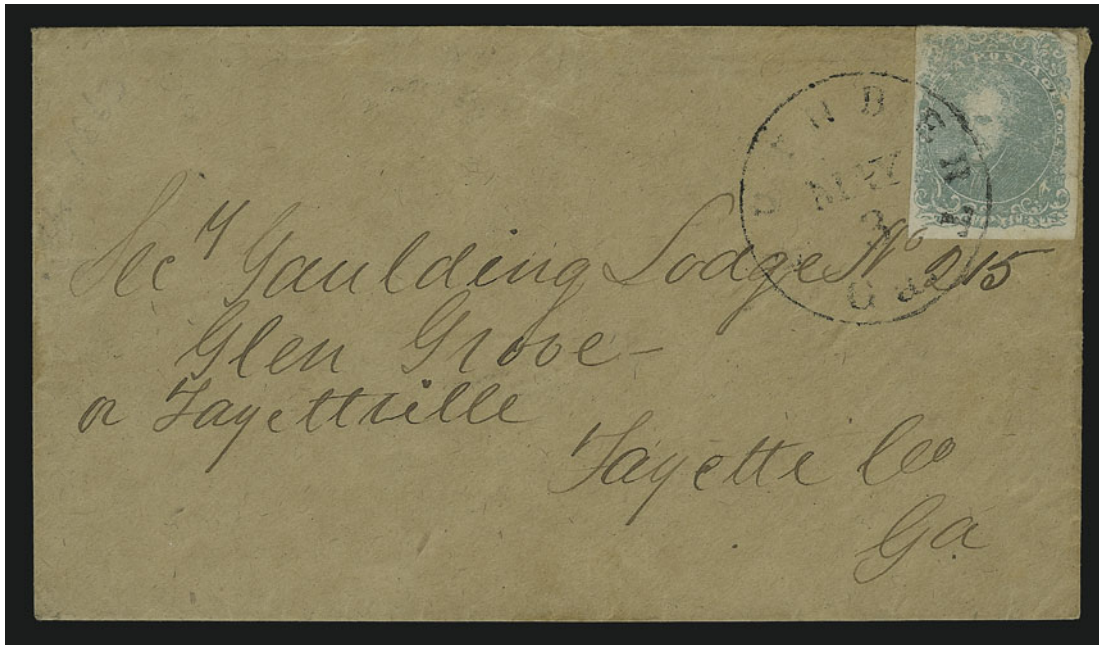 POSTAGE
MAY
3
Ga
Secy Gaulding Lodge No 215
Glen Grove –
or Fayetteville
Fayette Co
Ga